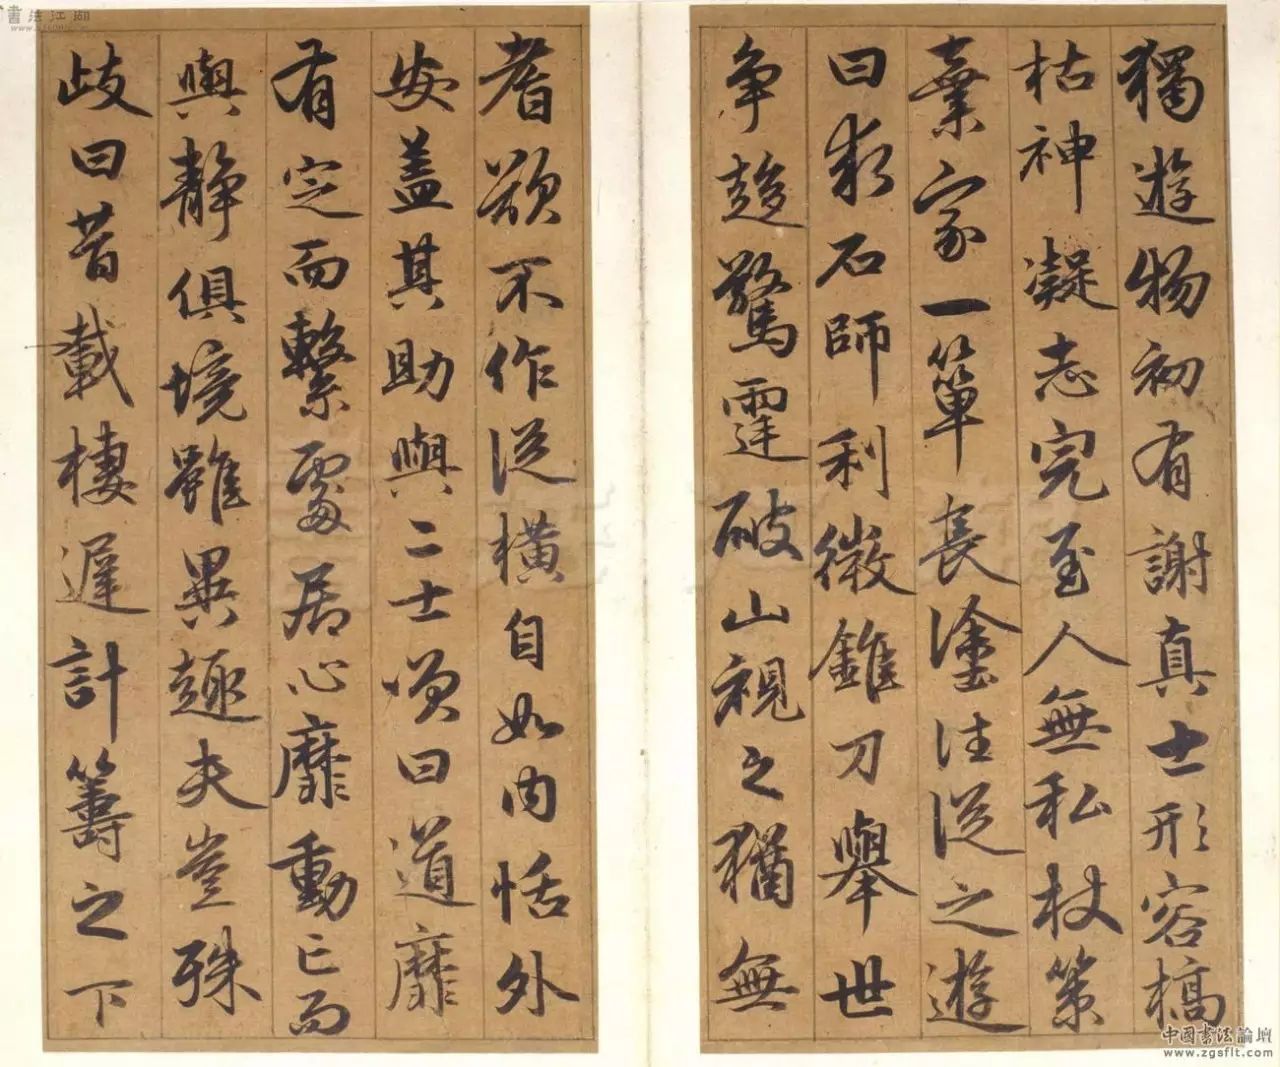 獨遊物初有謝真士形容槁
枯神凝志完至人無私杖策
棄家一簞長塗注從之遊
曰彩石師利微錐刀舉世
争趍驚霆破山視之猶無
耆欲不作從橫自如内恬外
安盖其助與二士頌曰道靡
有定而繫處居心靡動已而
與静俱境雖異趣夫豈殊
歧曰昔載棲遲計籌之下
書法江湖
中國書法論壇
www.zgsflt.com